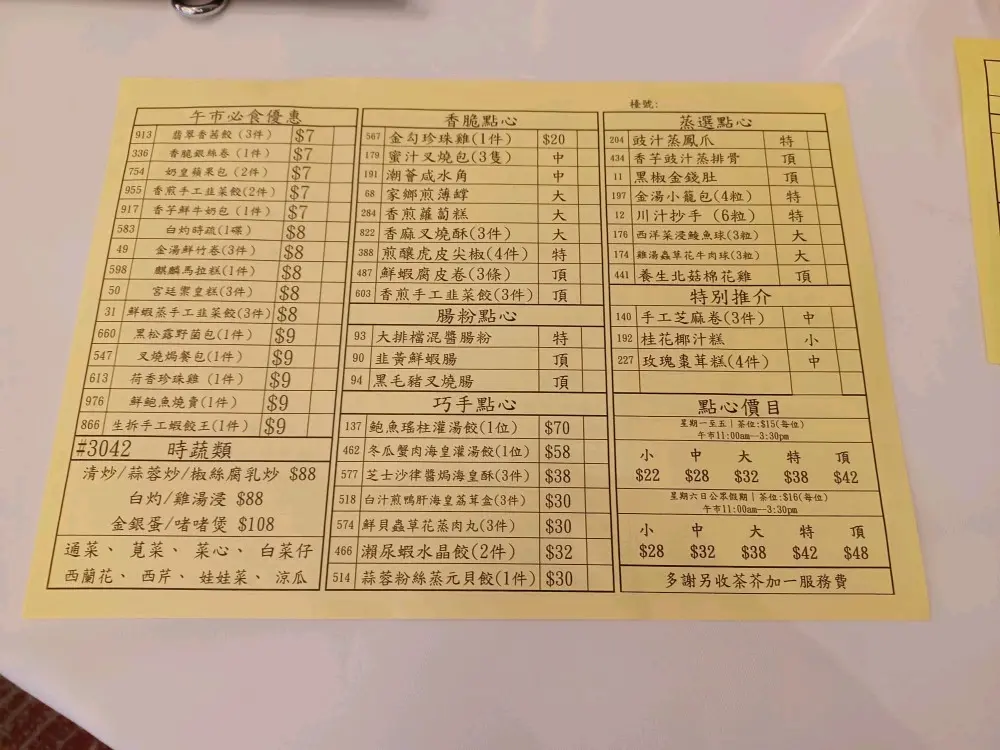 午市必食優惠
913 翡翠香茜餃(3件) $7
336 香脆銀絲卷(1件) $7
754 奶皇蘋果包(2件) $7
955 香煎手工韭菜餃(2件) $7
917 香芋鮮牛奶包(1件) $7
583 白灼時疏(1碟) $8
49 金湯鮮竹卷(3件) $8
598 麒麟馬拉糕(1件) $8
50 宮廷禦皇糕(3件) $8
31 鮮蝦蒸手工韭菜餃(3件) $8
660 黑松露野菌包(1件) $9
547 叉燒焗餐包(1件) $9
613 荷香珍珠雞(1件) $9
976 鮮鮑魚燒賣(1件) $9
866 生拆手工蝦餃王(1件) $9
#3042 時蔬類
清炒/蒜蓉炒/椒絲腐乳炒 $88
白灼/雞湯浸 $88
金銀蛋/啫啫煲 $108
通菜、莧菜、菜心、白菜仔
西蘭花、西芹、娃娃菜、涼瓜
香脆點心
567 金勾珍珠雞(1件) $20
179 蜜汁叉燒包(3隻) 中
191 潮薈咸水角 中
68 家鄉煎薄罉 大
284 香煎蘿蔔糕 大
822 香麻叉燒酥(3件) 大
388 煎釀虎皮尖椒(4件) 特
487 鮮蝦腐皮卷(3條) 頂
603 香煎手工韭菜餃(3件) 頂
腸粉點心
93 大排檔混醬腸粉 特
90 韭黃鮮蝦腸 頂
94 黑毛豬叉燒腸 頂
巧手點心
137 鮑魚瑤柱灌湯餃(1位) $70
462 冬瓜蟹肉海皇灌湯餃(1位) $58
577 芝士沙律醬焗海皇酥(3件) $38
518 白汁煎鴨肝海皇荔茸盒(3件) $30
574 鮮貝蟲草花蒸肉丸(3件) $30
466 瀨尿蝦水晶餃(2件) $32
514 蒜蓉粉絲蒸元貝餃(1件) $30
檯號:
蒸選點心
204 豉汁蒸鳳爪 特
434 香芋豉汁蒸排骨 頂
11 黑椒金錢肚 頂
197 金湯小籠包(4粒) 特
12 川汁抄手(6粒) 特
176 西洋菜浸鯪魚球(3粒) 大
174 雞湯蟲草花牛肉球(3粒) 大
441 養生北菇棉花雞 頂
特別推介
140 手工芝麻卷(3件) 中
192 桂花椰汁糕 小
227 玫瑰棗茸糕(4件) 中
點心價目
星期一至五|茶位:$15(每位)
午市11:00am--3:30pm
小 中 大 特 頂
$22 $28 $32 $38 $42
星期六日公眾假期|茶位:$16(每位)
午市11:00am--3:30pm
小 中 大 特 頂
$28 $32 $38 $42 $48
多謝另收茶芥加一服務費